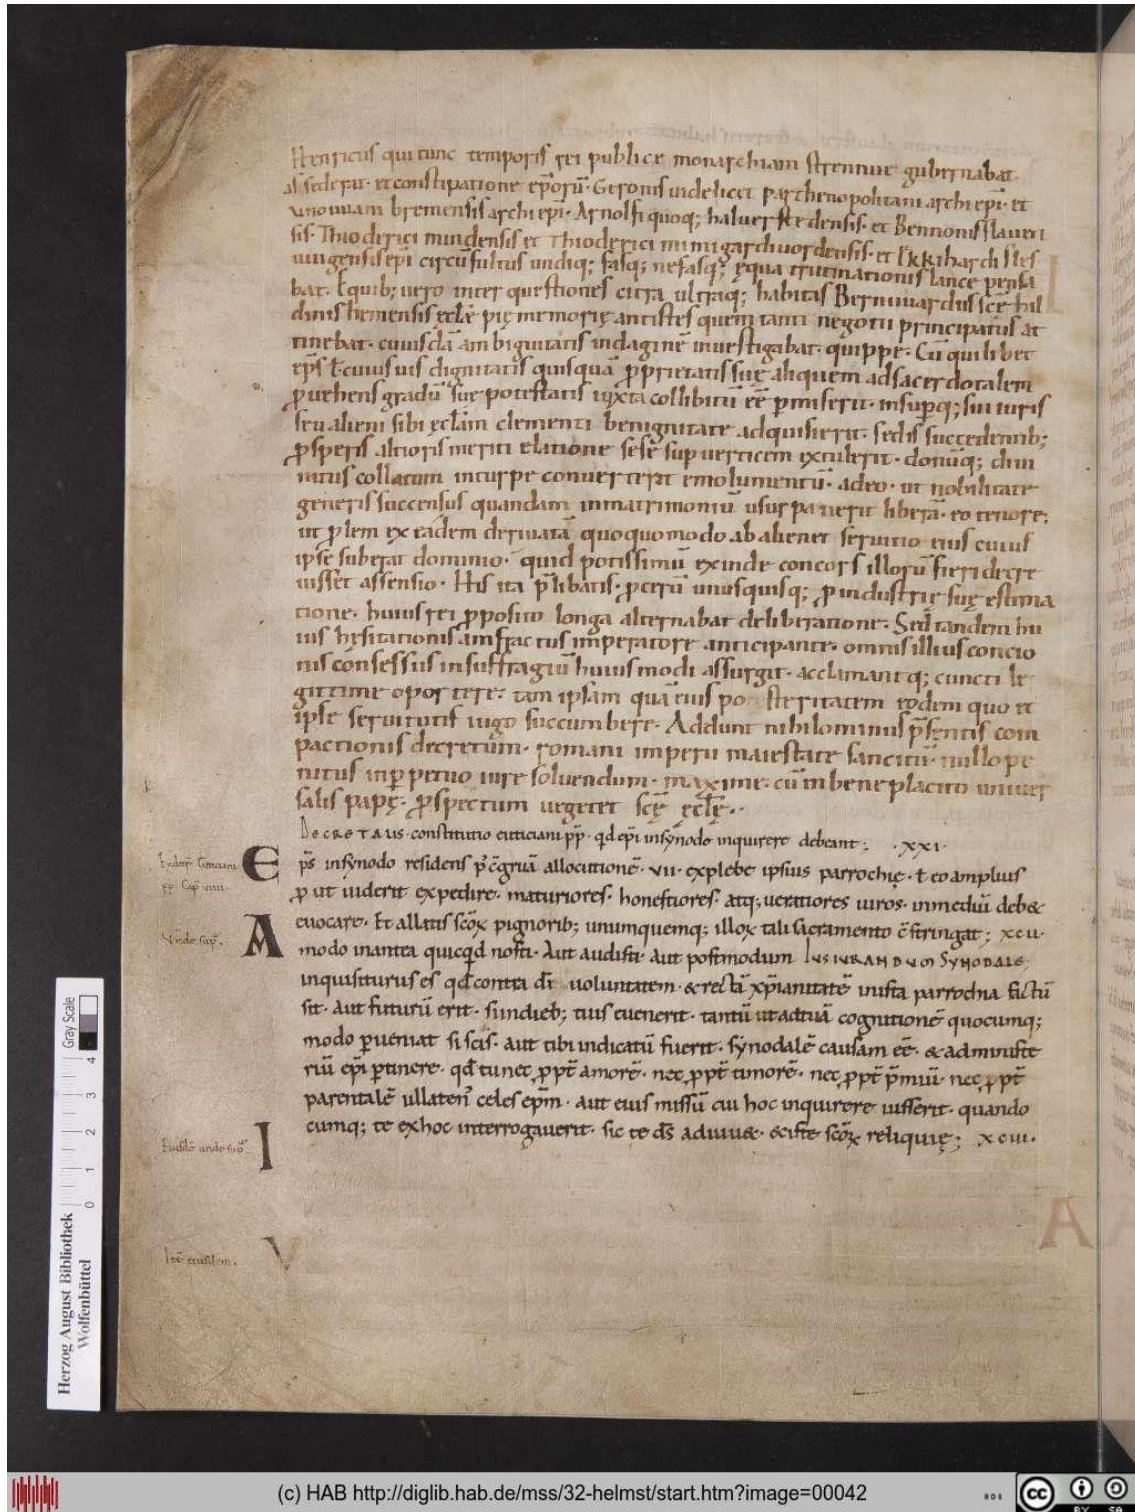 Henricus qui tunc temporis rei publicę monarchiam strennue gubernabat.
assederat· et constipatione ep̄orū· Geronis uidelicet parthenopolitani archiep̄i· et
unouuani bremensis archiep̄i· Arnolfi quoq; haluerstedensis· et Bennonis slaueri
sis· Thioderici mindensis et Thioderici mimigardiuordensis· et Ekkihardi sles
uuigensis ep̄i circūfultus undiq; fasq; nefasq; ęqua trutinationis lance pensa
bat· E quib; uero inter questiones citra ultraq; habitas Bernuuardus scē hil
dinishemensis ęclę̄ pię memorię antistes quem tanti negotii principatus at
tinebat· cuiusdā ambiguitatis indaginē inuestigabat· quippe· Cū quilibet
ep̄s ł cuiusuis dignitatis quisquā p̱prietatis suę aliquem ad sacerdotalem
p̱uehens gradū suę potestatis iuxta collibitū eē p̱miserit· insup̱q; sui iuris
seu alieni sibi ęclā̄m clementi benignitate adquisierit· sedis succedentib;
p̱speris altioris meriti elatione sese sup uerticem extulerit· donūq; diui
nitus collatum in turpe conuerterit emolumentū· adeo· ut nobilitate
generis succensus quandam in matrimoniū usurpauerit liberā· eo tenore;
ut p̱lem ex eadem deriuatā quoquo modo ab alienet seruitio eius cuius
ipse suberat dominio· quid potissimū exinde concors illorū fieri decre
uisset assensio· His ita p̄libatis· p̱cerū unusquisq; p̱ industrię suę estima
tione· huius rei p̱posito longa alternabat deliberatione· Sed tandem hu
ius hęsitationis amfractus imperatore anticipante· omnis illius concio
nis consessus in suffragiū huiusmodi assurgit· acclamantq; cuncti le
gittime oportere· tam ipsam quā eius posteritatem eodem quo et
ipse seruitutis iugo succumbere· Addunt nihilominus p̄sentis com
pactionis decretum· romani imperii maiestate sancitū· nullo pe
nitus inp̱petuo iure soluendum· maxime· cū in beneplacito uniuer
salis papę· p̱spectum uegetet scę̄ ęclę̄··
Decreta us· constitutio euticiani pp̄· qd ep̄i in synodo inquirere debeant; ·xxi·
Ep̄s in synodo residens p' c̄gruā allocutionē· vii· ex plebe ipsius parrochię· ł eo amplius
p̱ut uiderit expedire· maturiores· honestiores· atq; ueratiores uiros· in mediū debet
euocare· Et allatis scōꝝ pignorib; unumquemq; illoꝝ tali sacramento c̄stringat; xcii·
Amodo in antea quicqd nosti· Aut audisti· aut postmodum Iusiurandum Synodale
inquisiturus es qđ contra dī uoluntatem· & rectā xp̄ianitatē in ista parrochia factū
sit· aut futurū erit· si in dieb; tuis euenerit· tantū ut ad tuā cognitionē quocumq;
modo p̱ueniat si scis· aut tibi indicatū fuerit· synodalē causam eē· & ad ministe
riū ep̄i p̱tinere· qđ tu nec p̱pt̄ amorē· nec p̱pt̄ timorē· nec p̱pt̄ p̄miū· nec p̱pt̄
parentelē ullaten' celes ep̄m· aut eius missū cui hoc inquirere iusserit· quando
cumq; te ex hoc interrogauerit· sic te dś adiuu&· & iste scōꝝ reliquię; xciii·
Vnde sup̄.
I
V
Itē eiusdem.
A
Gray Scale
0 1 2 3 4
Herzog August Bibliothek
Wolfenbüttel
(c) HAB http://diglib.hab.de/mss/32-helmst/start.htm?image=00042
cc
BY SA